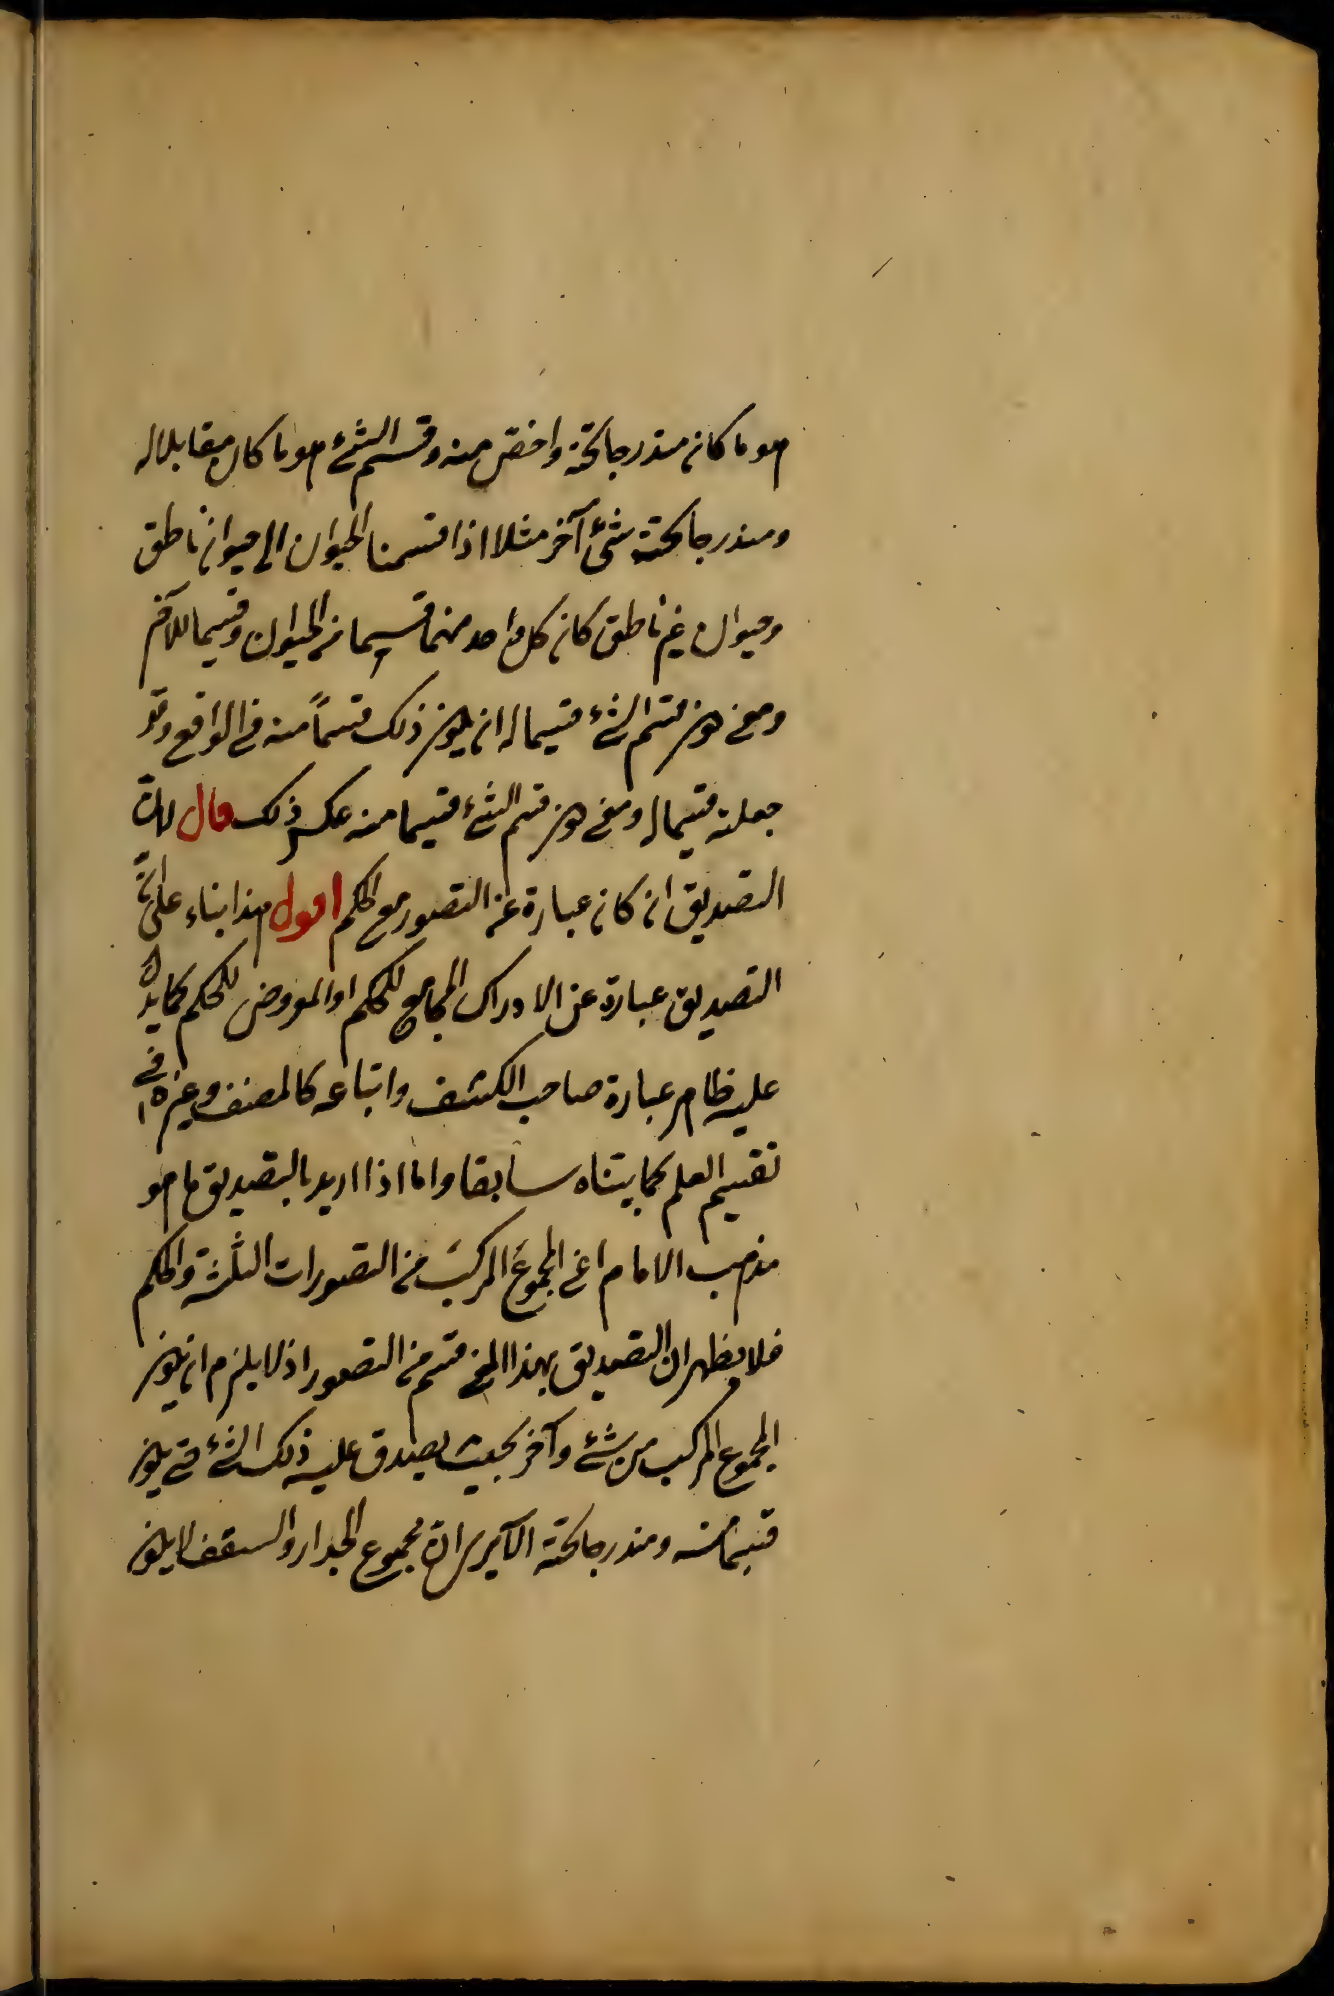 هو ما كان مندرجا تحته واخص منه وقسيم الشئ هو ما كان مقابلا له
ومندرجا تحته شئ آخر مثلا اذا قسمنا الحيوان الى حيوان ناطق
وحيوان غير ناطق كان كل واحد منهما قسيما من الحيوان وقسيما للآخر
ومعنى كون قسم الشئ قسيما له ان يكون ذلك قسماً منه فى الواقع وقد
جعلته قسيما له ومعنى كون قسيم الشئ قسيما منه عكس ذلك قال لان
التصديق ان كان عبارة عن التصور مع الحكم اقول هذا بناء على انّ
التصديق عبارة عن الادراك المجامع للحكم او المعروض للحكم كما يدل
عليه ظاهر عبارة صاحب الكشف واتباعه كالمصنف وغيره فى
تقسيم العلم كما بيناه سابقا واما اذا اريد بالتصديق ما هو
مذهب الامام اعنى المجموع المركب من التصورات الثلثة والحكم
فلا يظهر ان التصديق بهذا المعنى قسم من التصور اذ لا يلزم ان يكون
المجموع المركب من شئ وآخر بحيث يصدق عليه ذلك الشئ حتى يكون
قسما منه ومندرجا تحته الا يرى ان مجموع الجدار والسقف لا يكون